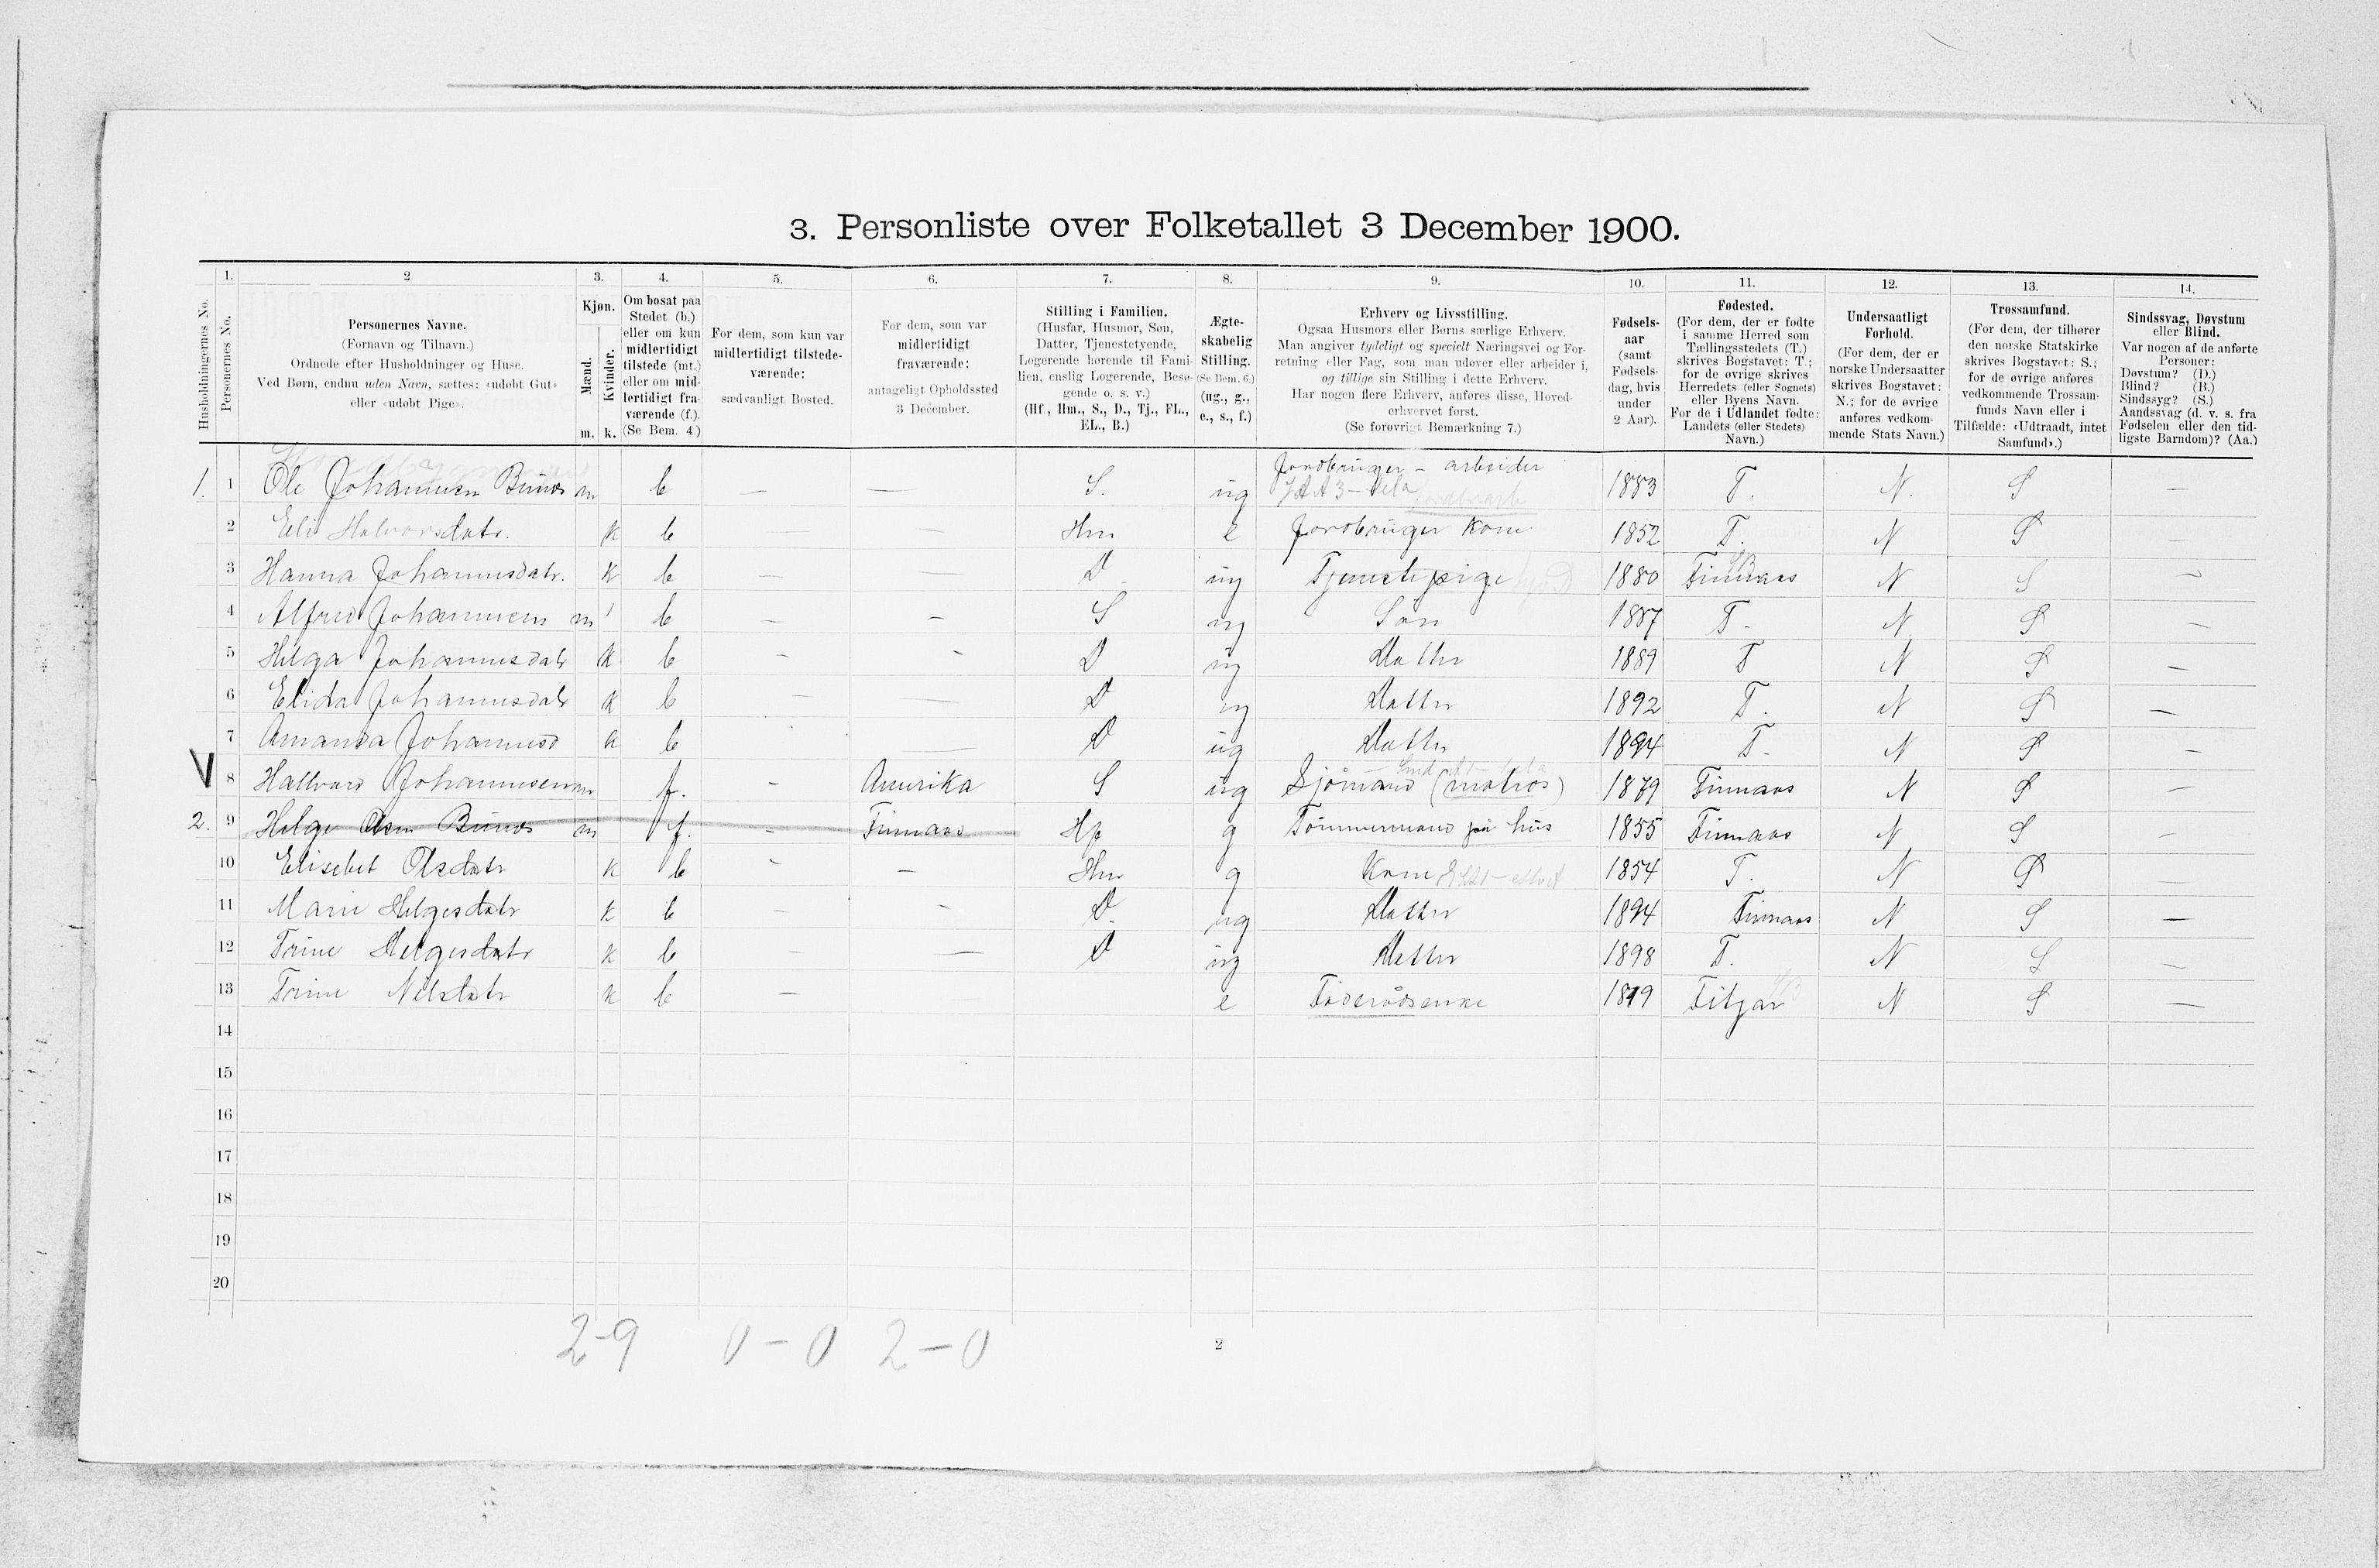 3. Personliste over Folketallet 3 December 1900.
Husholdningernes No.
1. Personernes No.
2 Personernes Navne. (Fornavn og Tilnavn.) Ordnede efter Husholdninger og Huse. Ved Børn, endnu uden Navn, sættes: «udøbt Gut» eller «udøbt Pige».
3. Kjøn. Mænd. m. Kvinder. k.
4. Om bosat paa Stedet (b.) eller om kun midlertidigt tilstede (mt.) eller om midlertidigt fraværende (f.). (Se Bem. 4.)
5. For dem, som kun var midlertidigt tilstedeværende: sædvanligt Bosted.
6. For dem, som var midlertidigt fraværende: antageligt Opholdssted 3 December.
7. Stilling i Familien. (Husfar, Husmor, Søn, Datter, Tjenestetyende, Logerende hørende til Familien, enslig Logerende, Besøgende o. s. v.) (Hf., Hm., S., D., Tj., FL., EL., B.)
8. Ægteskabelig Stilling. (Se Bem. 6.) (ug., g., e., s., f.)
9. Erhverv og Livsstilling. Ogsaa Husmors eller Børns særlige Erhverv. Man angiver tydeligt og specielt Næringsvei og Forretning eller Fag, som man udøver eller arbeider i, og tillige sin Stilling i dette Erhverv. Har nogen flere Erhverv, anføres disse, Hovederhvervet først. (Se forøvrigt Bemærkning 7.)
10. Fødselsaar (samt Fødselsdag, hvis under 2 Aar).
11. Fødested. (For dem, der er fødte i samme Herred som Tællingsstedets (T.) skrives Bogstavet: T.; for de øvrige skrives Herredets (eller Sognets) eller Byens Navn. For de i Udlandet fødte: Landets (eller Stedets) Navn.)
12. Undersaatligt Forhold. (For dem, der er norske Undersaatter skrives Bogstavet: N.; for de øvrige anføres vedkommende Stats Navn.)
13. Trossamfund. (For dem, der tilhører den norske Statskirke skrives Bogstavet: S.; for de øvrige anføres vedkommende Trossamfunds Navn eller i Tilfælde: «Udtraadt, intet Samfund».)
14. Sindssvag, Døvstum eller Blind. Var nogen af de anførte Personer: Døvstum? (D.) Blind? (B.) Sindssyg? (S.) Aandssvag (d. v. s. fra Fødselen eller den tidligste Barndom)? (Aa.)
1. 1 Ole Johannesen m b — — S. ug Jordbruger - arbeider 1883 T. N. S —
2 Eli Halvorsdatr. k b — Hm e Jordbruger Kone 1852 T. N S —
3 Hanna Johannesdatr. k b — — D ug Tjenestepige 1880 Finnaas N S —
4 Alfred Johannesen m b — - S ug Søn 1887 T. N S —
5 Helga Johannesdatr k b - - D ug Datter 1889 T N S —
6 Elida Johannesdatr k b — — D ug Datter 1892 T. N S —
7 Amanda Johannesd k b — D ug Datter 1894 T. N S —
V 8 Hallvard Johannesen m f. - Amerika S ug Sjömand (matros) 1879 Finnaas N S —
2. 9 Helge Olsen m f. - Finnaas Hf g Tömmermand på hus 1855 Finnaas N S —
10 Elisebet Olsdatr k b - — Hm g Kone 1854 T. N S —
11 Marie Helgesdatr k b - - D. ug Datter 1894 Finnaas N S —
12 Trine Helgesdatr k b — — D ug Datter 1898 T. N S —
13 Trine Nilsdatr k b — e Föderådsenke 1819 Fitjar N S —
14
15
16
17
18
19
20
2-9 0-0 2-0
2